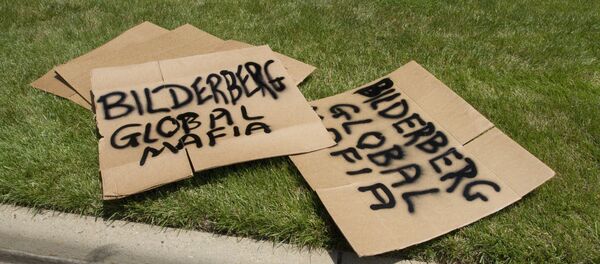 BILDERBERG
GLOBAL
MAFIA
BILDERBERG
GLOBAL
FIA